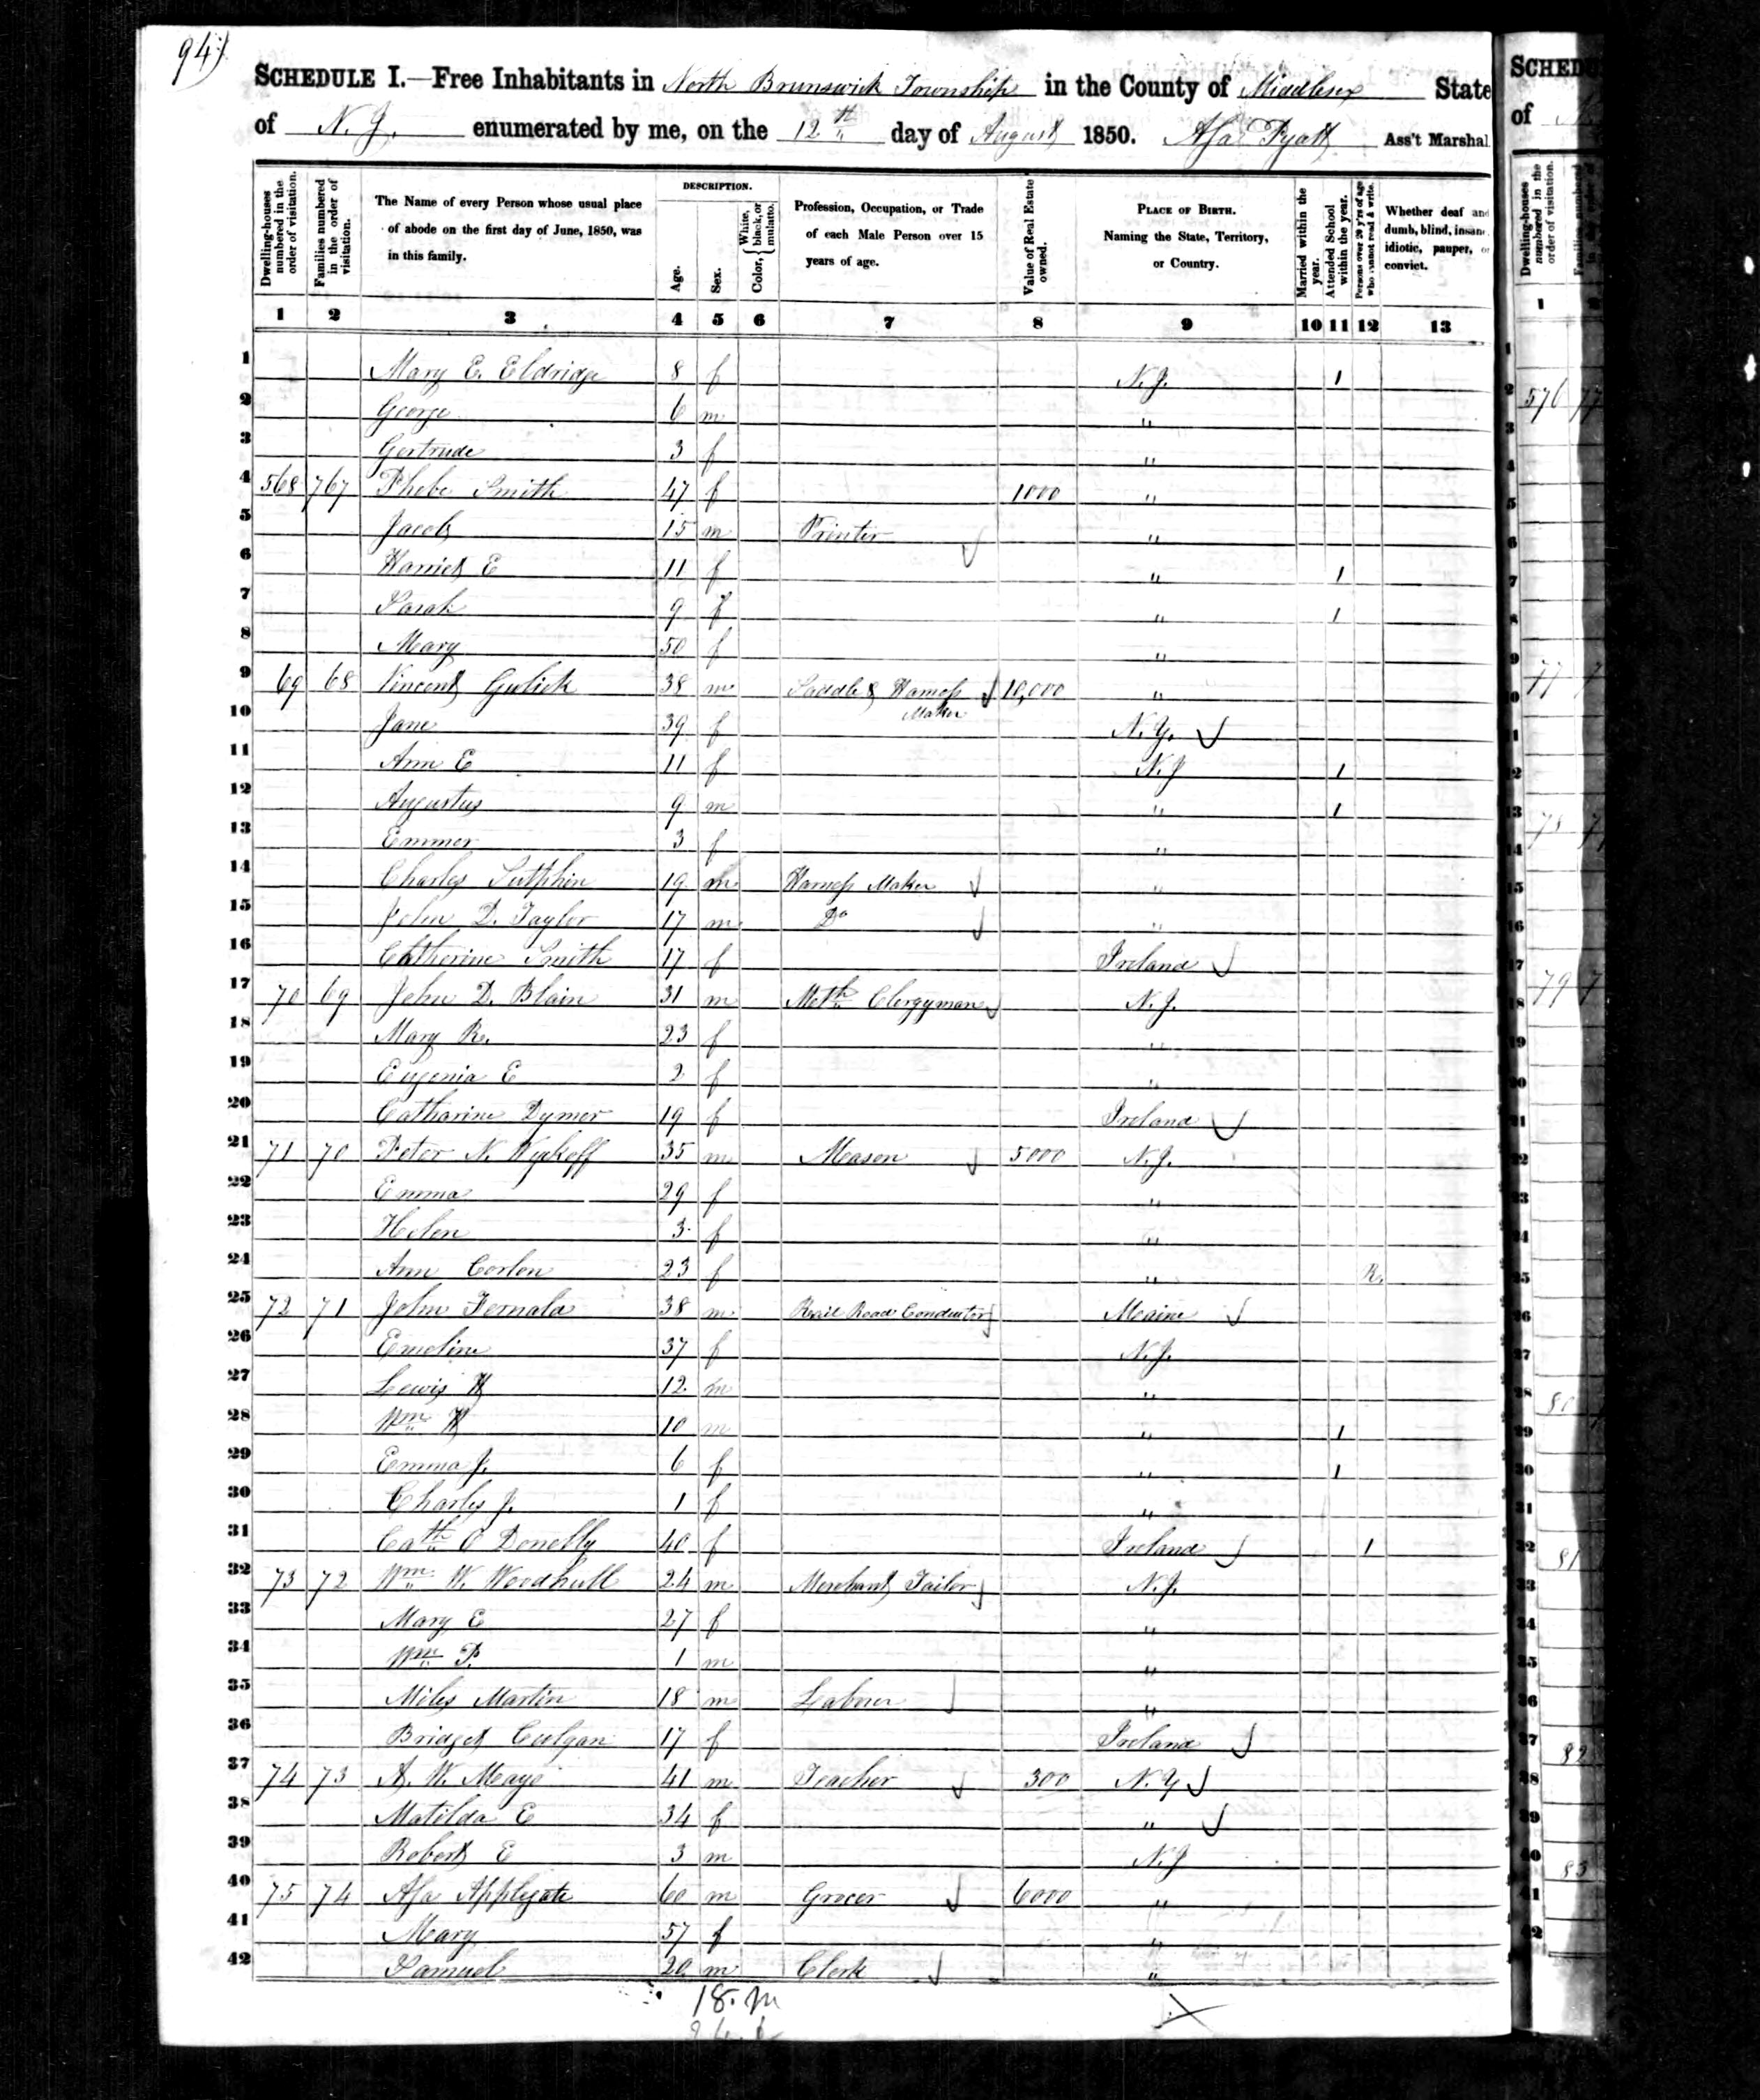 94)
SCHEDULE I.—Free Inhabitants in North Brunswick Township in the County of Middlesex State
of N. J. enumerated by me, on the 12th day of August 1850. Asa Pyatt Ass't Marshal
Dwelling-houses numbered in the order of visitation.
Families numbered in the order of visitation.
The Name of every Person whose usual place of abode on the first day of June, 1850, was in this family.
DESCRIPTION.
Age.
Sex.
Color, { White, black, or mulatto.
Profession, Occupation, or Trade of each Male Person over 15 years of age.
Value of Real Estate owned.
PLACE OF BIRTH. Naming the State, Territory, or Country.
Married within the year.
Attended School within the year.
Persons over 20 y'rs of age who cannot read & write.
Whether deaf and dumb, blind, insane, idiotic, pauper, or convict.
1 2 3 4 5 6 7 8 9 10 11 12 13
1 Mary E. Eldridge 8 f N.J. 1
2 George 6 m "
3 Gertrude 3 f "
4 568 767 Phebe Smith 47 f 1000 "
5 Jacob 15 m Printer "
6 Harriet E 11 f " 1
7 Sarah 9 f " 1
8 Mary 50 f "
9 69 68 Vincent Gulick 38 m Saddle & Harness Maker 10,000 "
10 Jane 39 f N.Y.
11 Ann E 11 f N.J 1
12 Augustus 9 m " 1
13 Emmer 3 f "
14 Charles Sutphin 19 m Harness Maker "
15 John D. Taylor 17 m Do "
16 Catherine Smith 17 f Ireland
17 70 69 John D. Blain 31 m Meth Clergyman N.J.
18 Mary R. 23 f "
19 Eugenia E 2 f "
20 Catharine Dymer 19 f Ireland
21 71 70 Peter N. Wykoff 35 m Mason 5000 N.J.
22 Emma 29 f "
23 Helen 3 f "
24 Ann Corlen 23 f " R.
25 72 71 John Fernald 38 m Rail Road Conductor Maine
26 Emeline 37 f N.J.
27 Lewis H 12 m "
28 Wm H 10 m " 1
29 Emma J. 6 f " 1
30 Charles J. 1 f "
31 Cath O Donelly 40 f Ireland 1
32 73 72 Wm W. Woodhull 24 m Merchant Tailor N.J.
33 Mary E 27 f "
34 Wm P. 1 m "
35 Miles Martin 18 m Laborer "
36 Bridget Culgan 17 f Ireland
37 74 73 A. W. Mayo 41 m Teacher 300 N.Y
38 Matilda E 34 f "
39 Robert E 3 m N.J
40 75 74 Asa Applegate 60 m Grocer 6000 "
41 Mary 57 f "
42 Samuel 20 m Clerk "
18. m
SCHEDU
of
Dwelling-houses numbered in the order of visitation.
1
576 77
77 7
78 7
79 7
80
81
82
83